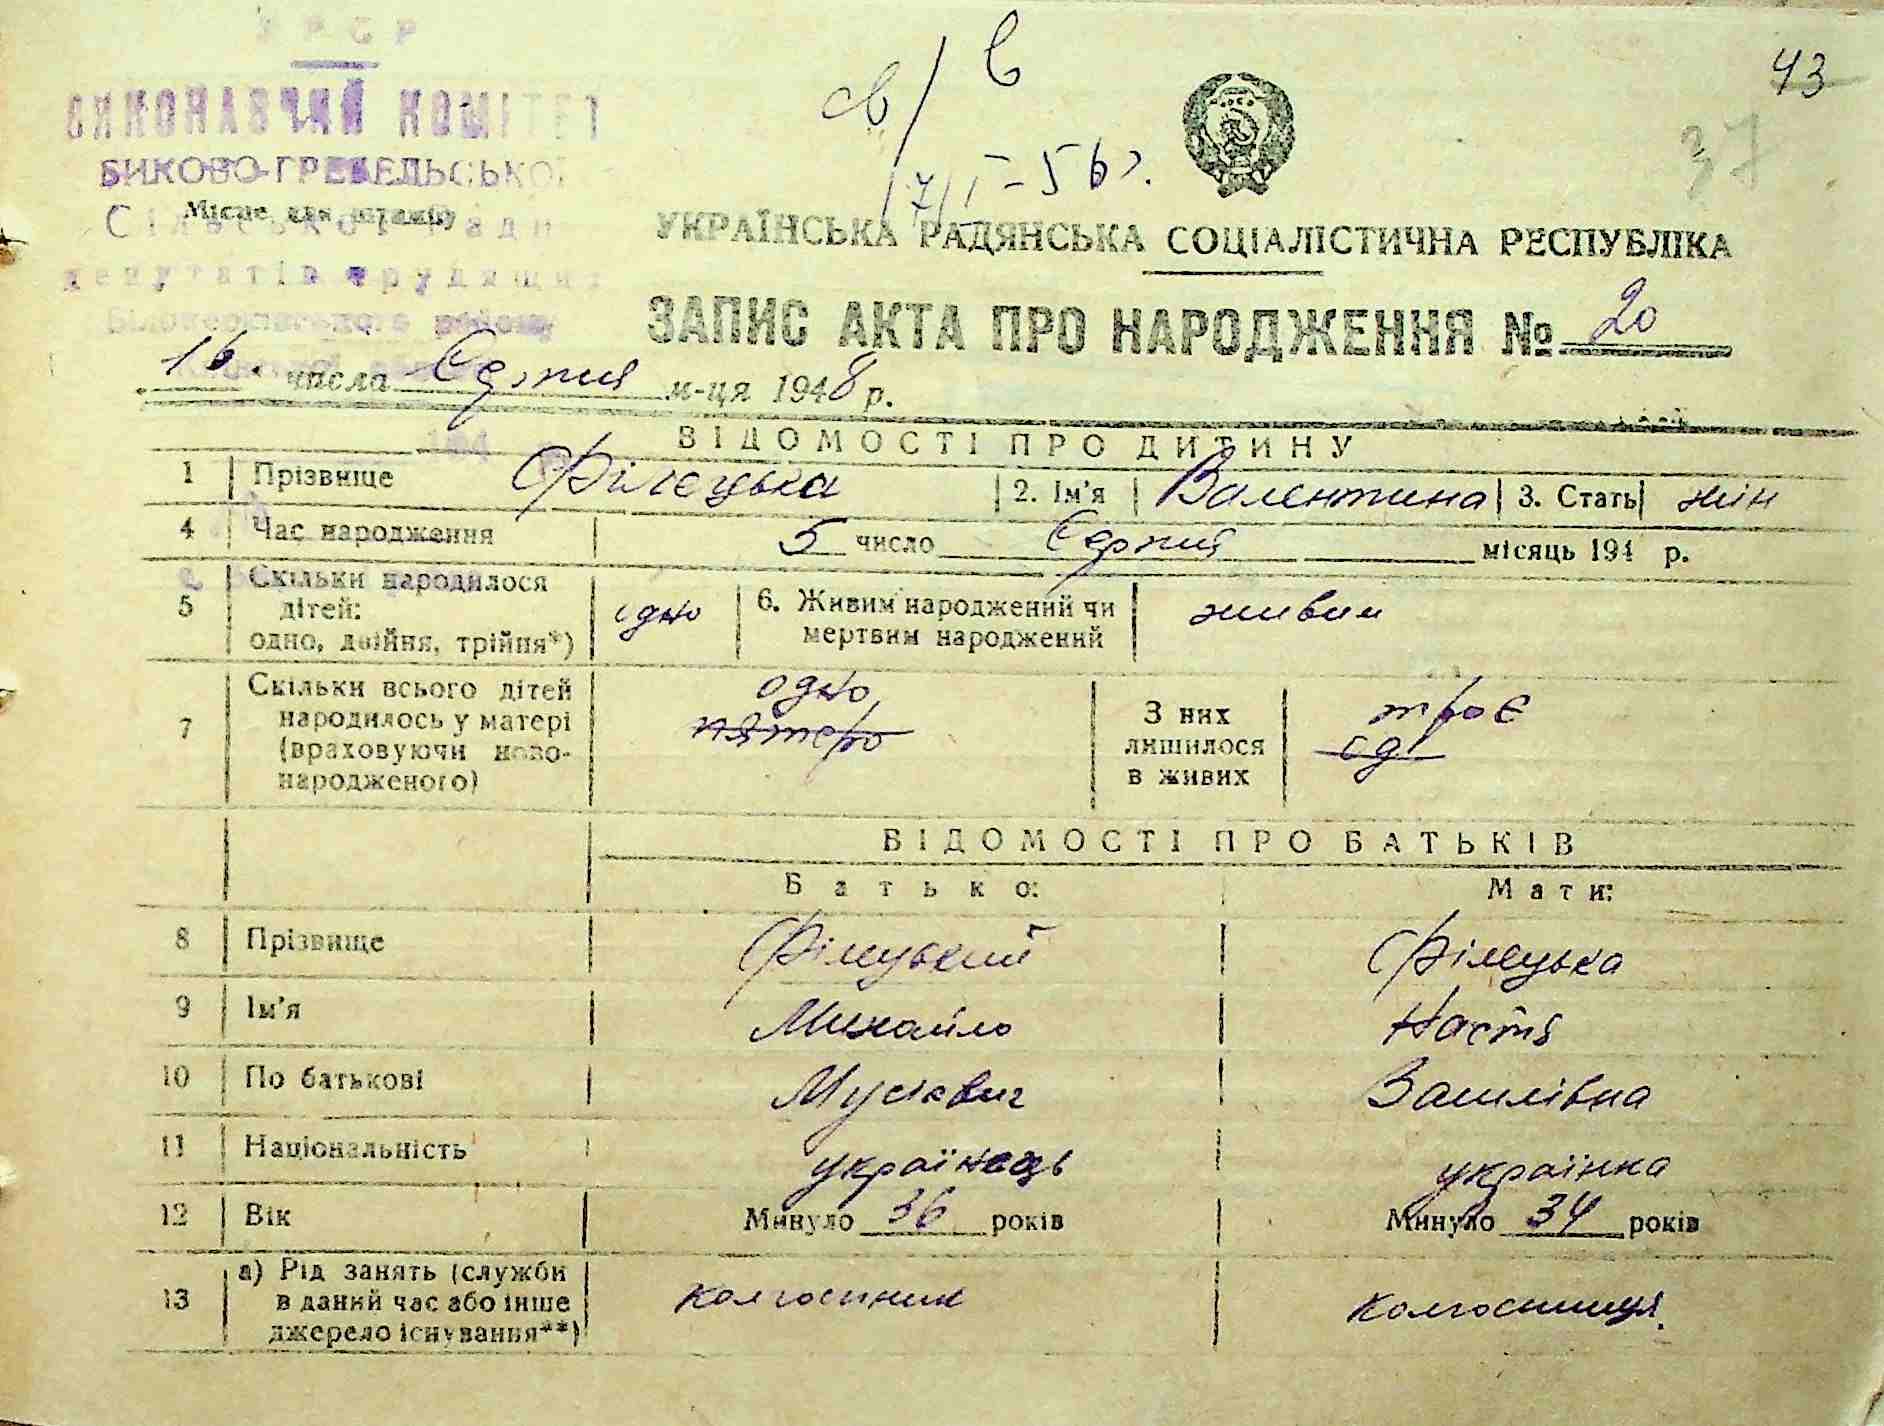 УРСР
ВИКОНАВЧИЙ КОМІТЕТ
БИКОВО-ГРЕБЕЛЬСЬКОЇ
Місце для штампу
Сільської Ради
депутатів трудящих
Білоцерківського району
св/в
7/I-56 р.
43
37
УКРАЇНСЬКА РАДЯНСЬКА СОЦІАЛІСТИЧНА РЕСПУБЛІКА
ЗАПИС АКТА ПРО НАРОДЖЕННЯ № 20
16 числа Серпня м-ця 1948 р.
ВІДОМОСТІ ПРО ДИТИНУ
1 Прізвище Філєцька 2. Ім'я Валентина 3. Стать жін
4 Час народження 5 число Серпня місяць 194 р.
5 Скільки народилося дітей: одно, двійня, трійня*) одно 6. Живим народжений чи мертвим народжений живим
7 Скільки всього дітей народилось у матері (враховуючи новонародженого) одно пятеро З них лишилося в живих троє од
ВІДОМОСТІ ПРО БАТЬКІВ
Батько: Мати:
8 Прізвище Філецький Філецька
9 Ім'я Михайло Настя
10 По батькові Мусієвич Василівна
11 Національність українець українка
12 Вік Минуло 36 років Минуло 34 років
13 а) Рід занять (служби в даний час або інше джерело існування**) колгоспник колгоспниця